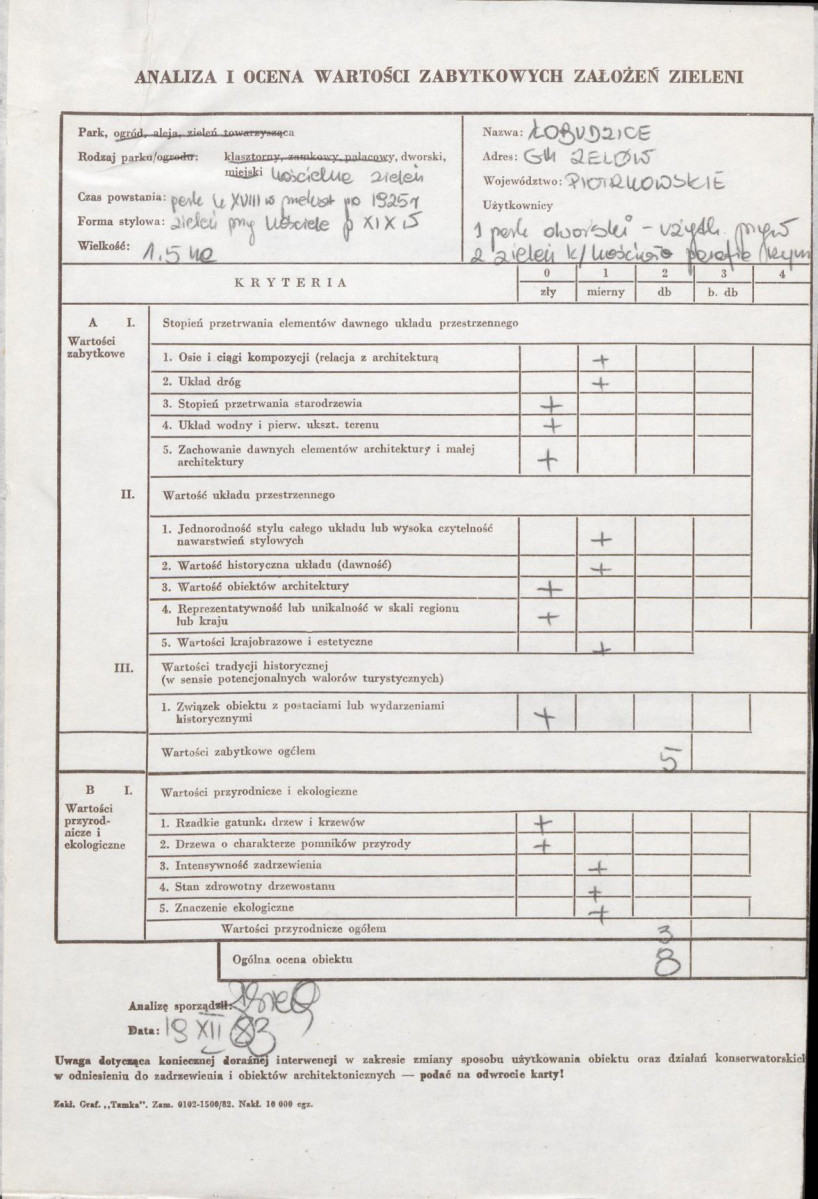 ANALIZA I OCENA WARTOŚCI ZABYTKOWYCH ZAŁOŻEŃ ZIELENI
Park, ogród, aleja, zieleń towarzysząca
Rodzaj parku/ogrodu: klasztorny, zamkowy, pałacowy, dworski,
miejski kościelne zieleń
Czas powstania: park k XVIII w po 1925 r
Forma stylowa: zieleń przy kościele p XIX w
Wielkość: 1.5 ha
Nazwa: ŁOBUDZICE
Adres: GM ZELÓW
Województwo: PIOTRKOWSKIE
Użytkownicy
1 park dworski - użytk. pryw
2 zieleń k/kościoła parafia rzym
KRYTERIA
0 1 2 3 4
zły mierny db b. db
A I. Stopień przetrwania elementów dawnego układu przestrzennego
Wartości
zabytkowe
1. Osie i ciągi kompozycji (relacja z architekturą +
2. Układ dróg +
3. Stopień przetrwania starodrzewia +
4. Układ wodny i pierw. ukszt. terenu +
5. Zachowanie dawnych elementów architektury i małej
architektury +
II. Wartość układu przestrzennego
1. Jednorodność stylu całego układu lub wysoka czytelność
nawarstwień stylowych +
2. Wartość historyczna układu (dawność) +
3. Wartość obiektów architektury +
4. Reprezentatywność lub unikalność w skali regionu
lub kraju +
5. Wartości krajobrazowe i estetyczne +
III. Wartości tradycji historycznej
(w sensie potencjonalnych walorów turystycznych)
1. Związek obiektu z postaciami lub wydarzeniami
historycznymi +
Wartości zabytkowe ogółem 5
B I. Wartości przyrodnicze i ekologiczne
Wartości
przyrod-
nicze i
ekologiczne
1. Rzadkie gatunki drzew i krzewów +
2. Drzewa o charakterze pomników przyrody +
3. Intensywność zadrzewienia +
4. Stan zdrowotny drzewostanu +
5. Znaczenie ekologiczne +
Wartości przyrodnicze ogółem 3
Ogólna ocena obiektu 8
Analizę sporządził:
Data: 19 XII 83
Uwaga dotycząca koniecznej doraźnej interwencji w zakresie zmiany sposobu użytkowania obiektu oraz działań konserwatorskich
w odniesieniu do zadrzewienia i obiektów architektonicznych — podać na odwrocie karty!
Zakł. Graf. „Tamka". Zam. 0102-1500/82. Nakł. 10 000 egz.